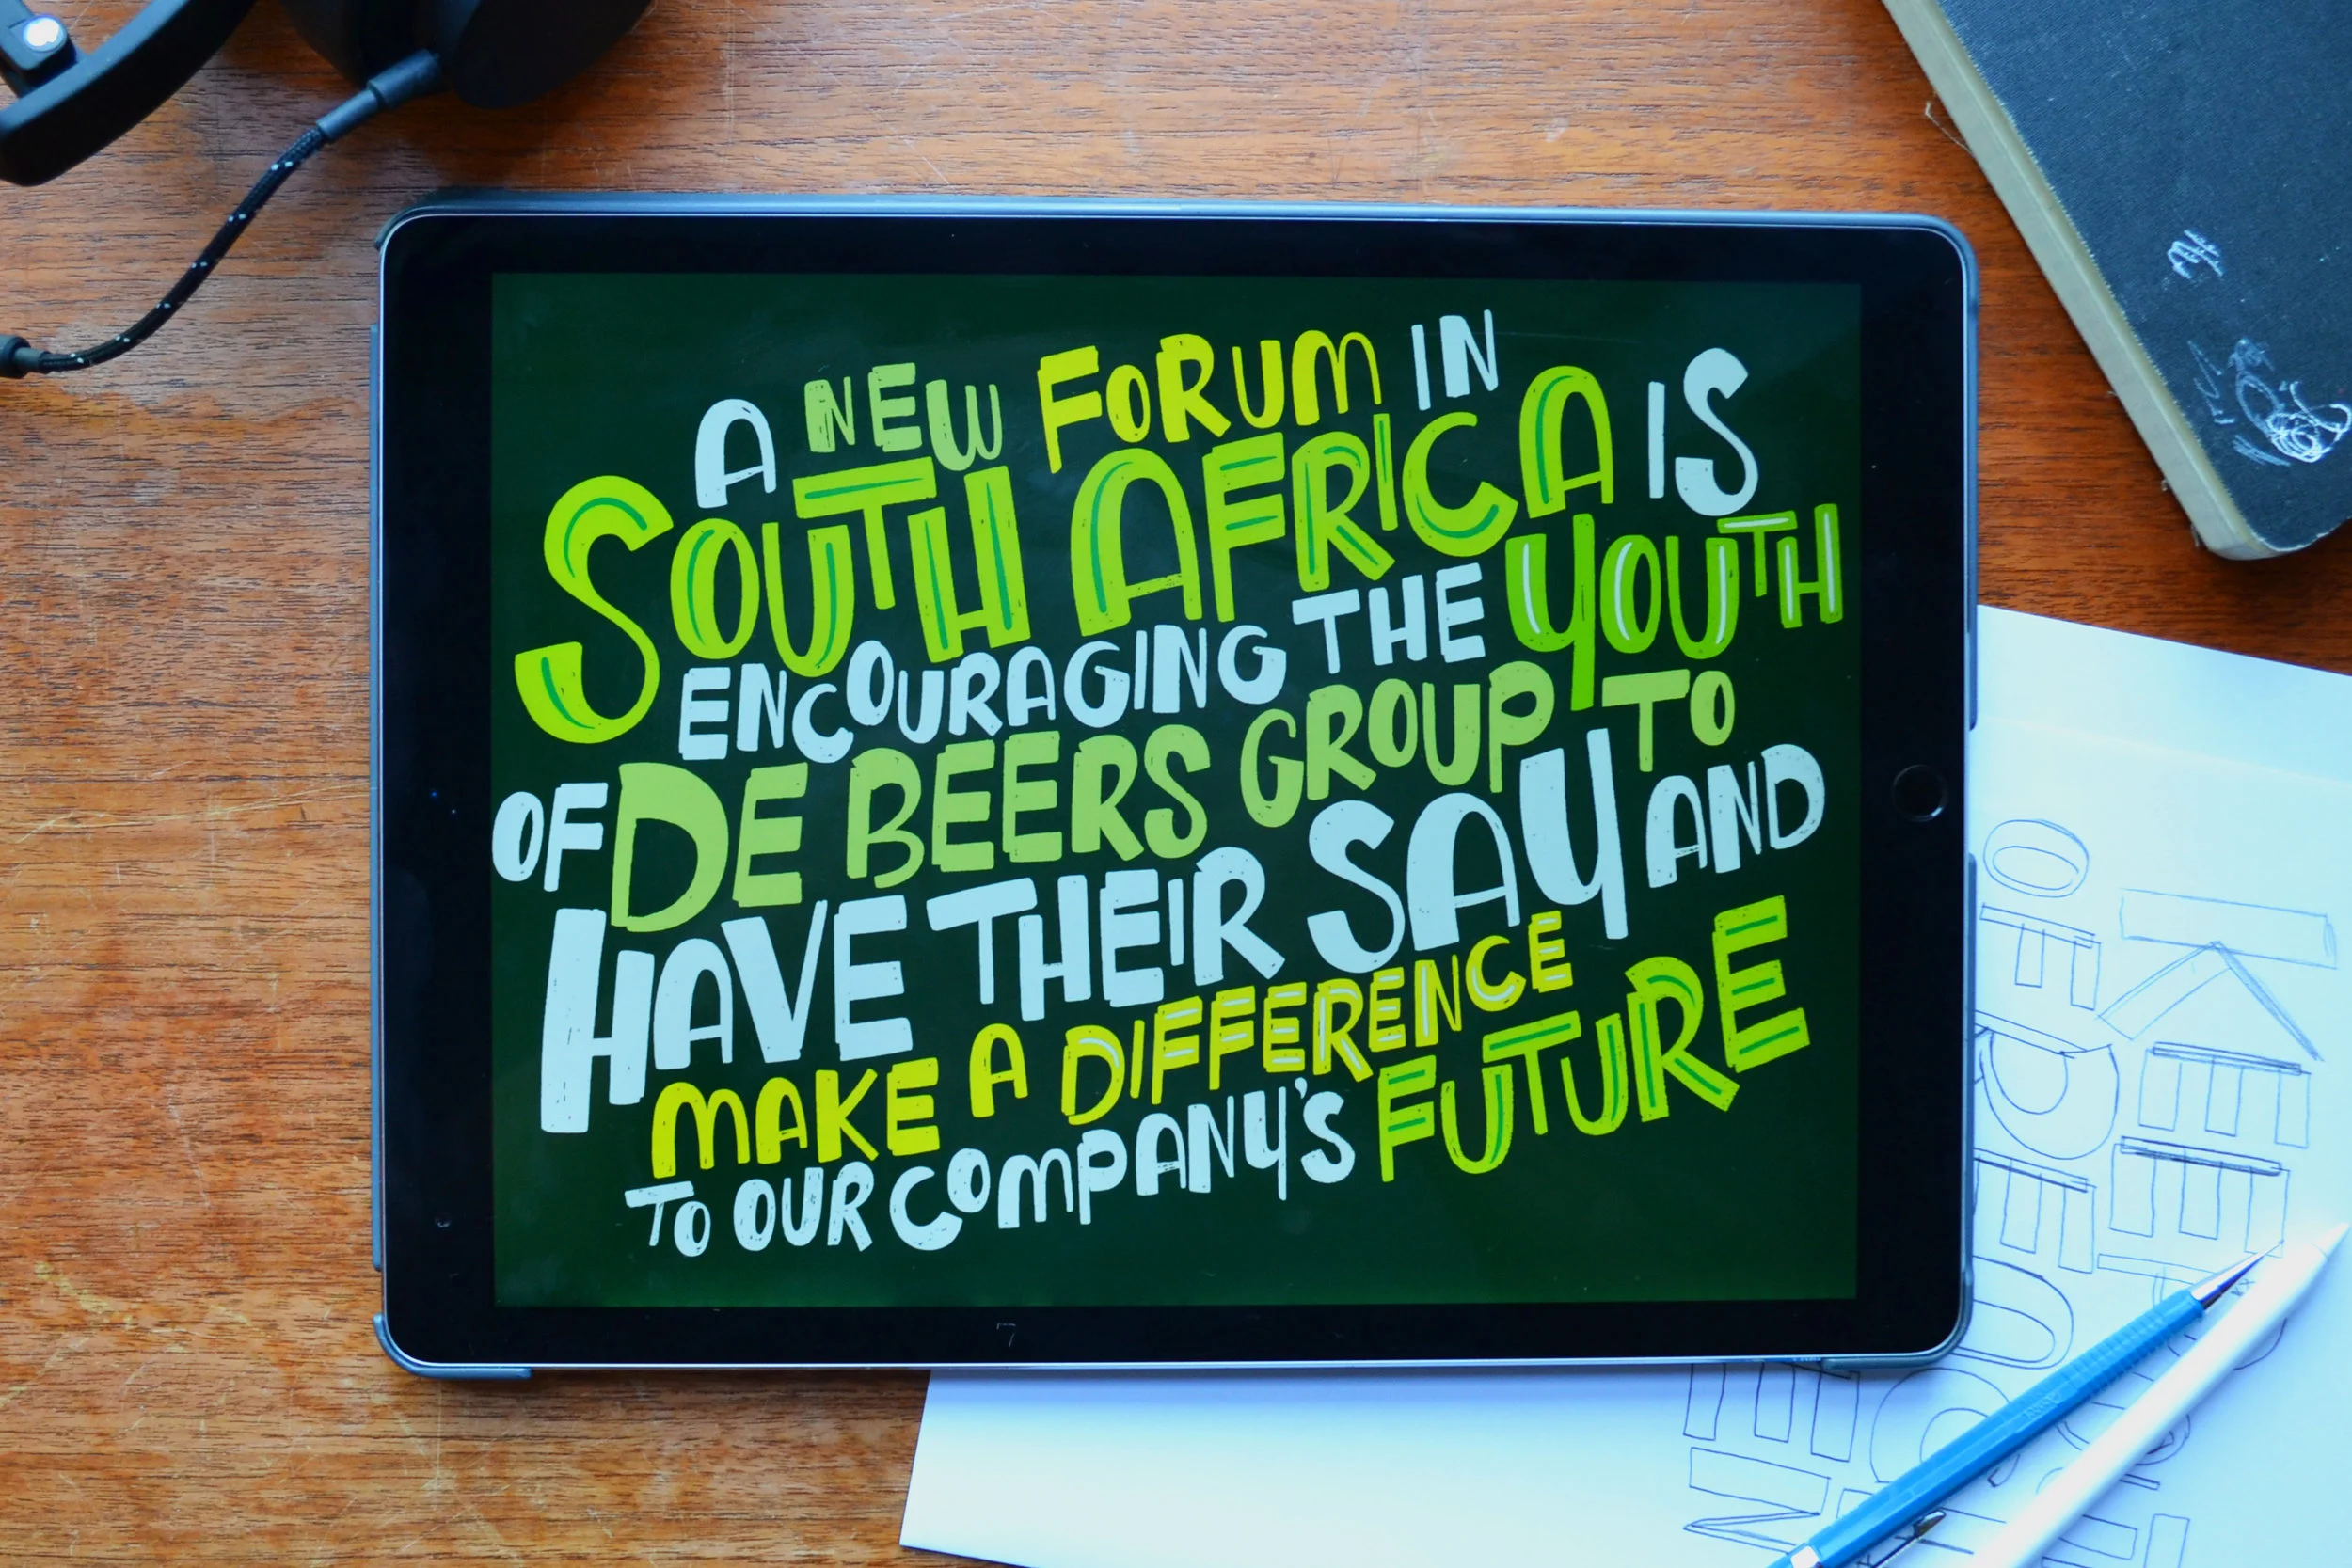 A NEW FORUM IN
SOUTH AFRICA IS
ENCOURAGING THE YOUTH
OF DE BEERS GROUP TO
HAVE THEIR SAY AND
MAKE A DIFFERENCE
TO OUR COMPANY'S FUTURE